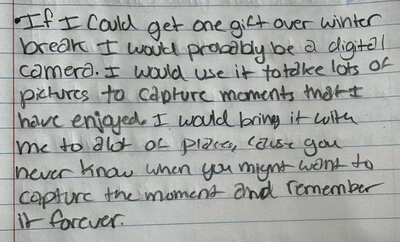 • If I Could get one gift over winter
break I would probably be a digital
camera. I would use it to take lots of
pictures to capture moments that I
have enjoyed. I would bring it with
me to alot of places, cause you
never know when you might want to
capture the moment and remember
it forever.